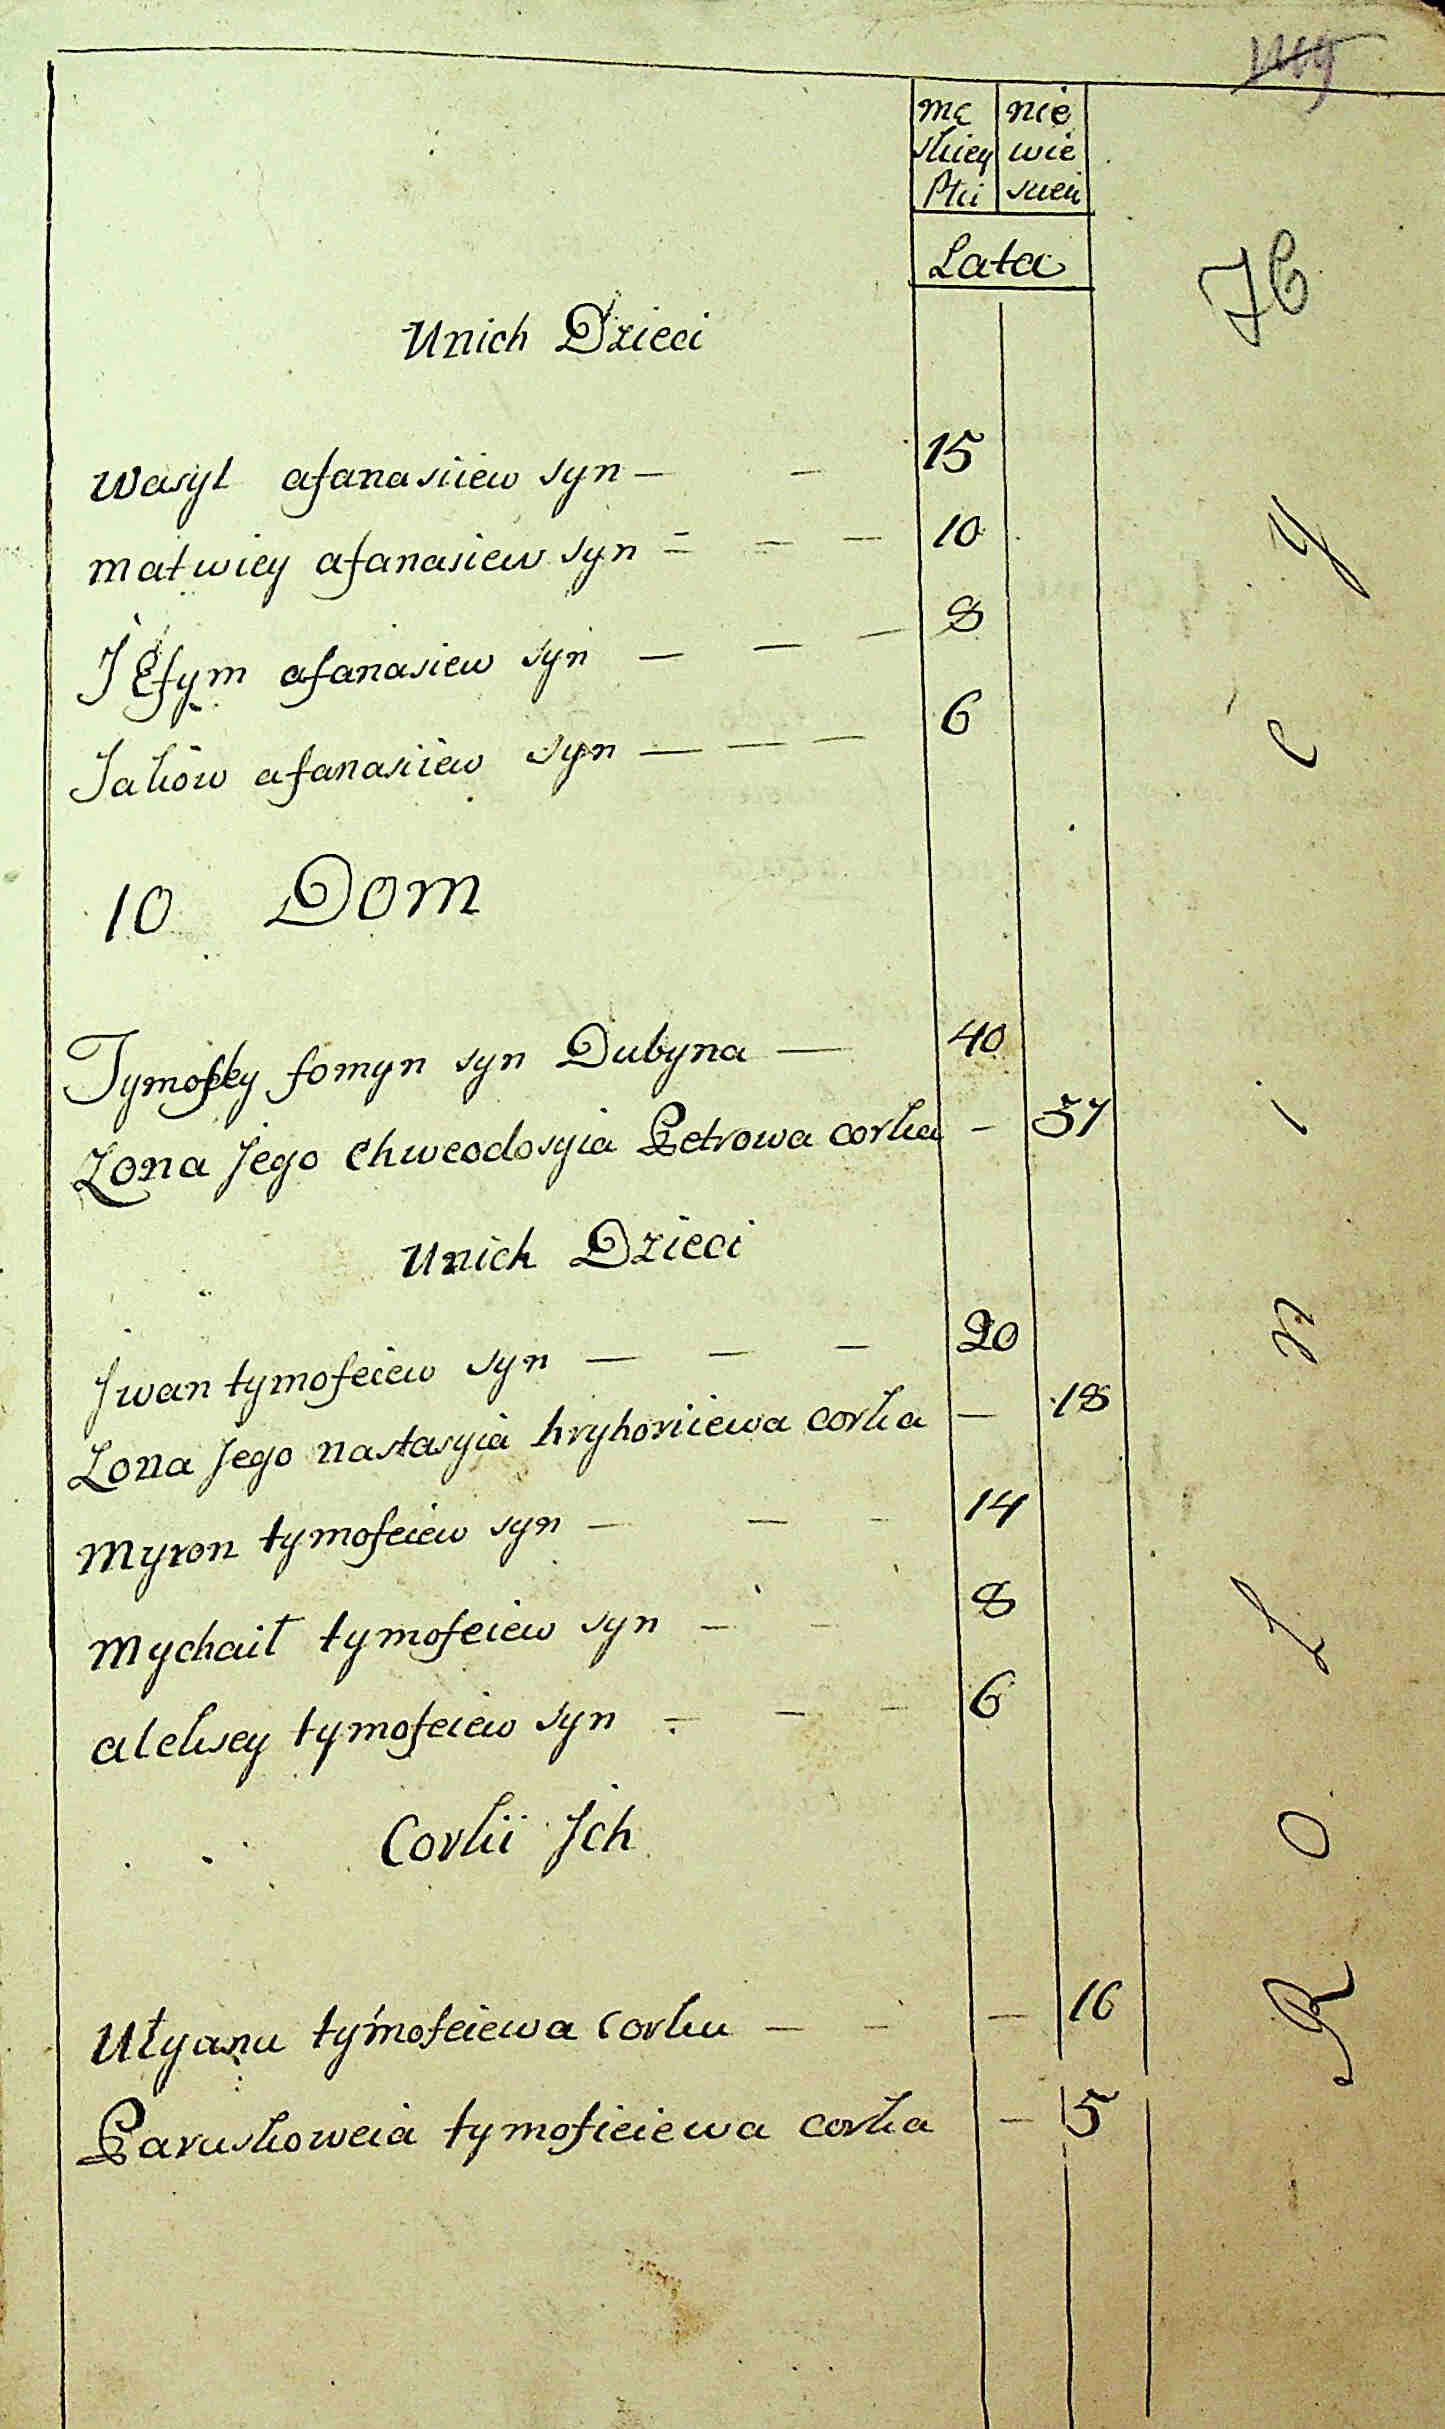 mę nie
skiey wie
Płci sciei
Lata
Unich Dzieci
Wasyl afanasiiew syn — — 15
matwiey afanasiew syn — — — 10
Jefym afanasiew syn — — — 8
Jaków afanasiiew syn — — — 6
10 Dom
Tymofey fomyn syn Dubyna — 40
Zona Jego Chweodosyia Petrowa corka — 37
Unich Dzieci
Jwan tymofeiew syn — — — 20
Zona Jego nastasyia hryhoriiewa corka — 18
Myron tymofeiew syn — — — 14
Mychaił tymofeiew syn — — 8
aleksey tymofeiew syn — — — 6
Corkii Jch
Ułyana tymofeiewa corka — — — 16
Paraskoweia tymofieiewa corka — 5
R o l n i c y